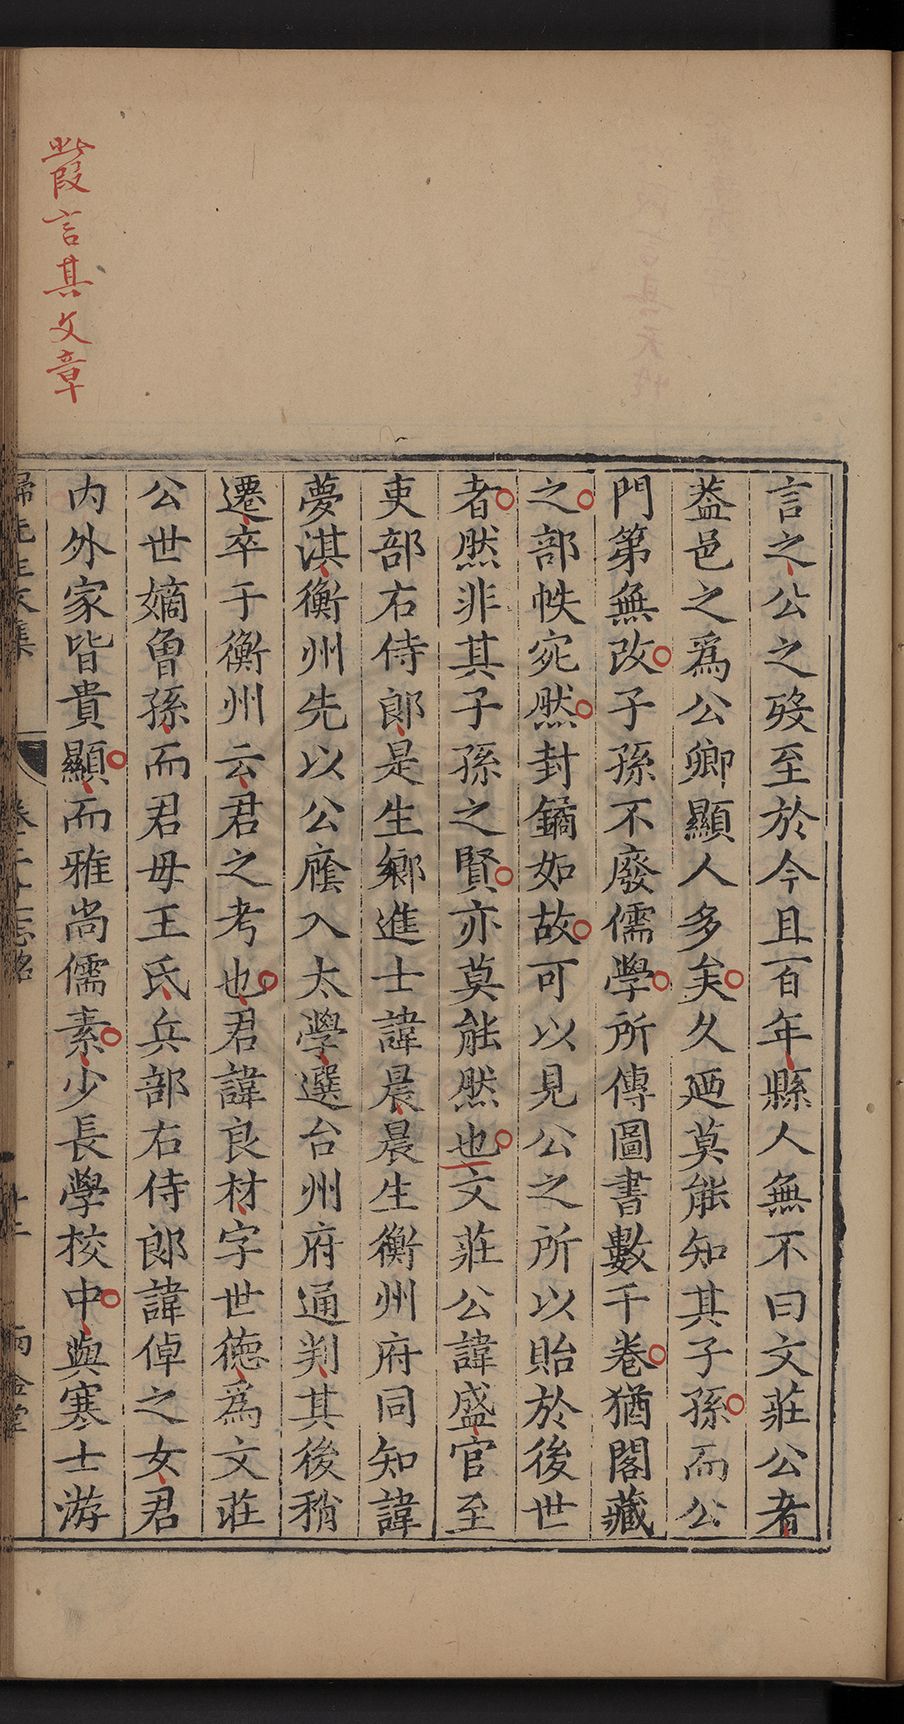 此段言其文章
言之公之歿至於今且百年縣人無不曰文莊公者
葢邑之爲公卿顯人多矣久廼莫能知其子孫而公
門第無改子孫不廢儒學所傳圖書數千卷猶閣藏
之部帙宛然封鐍如故可以見公之所以貽於後世
者然非其子孫之賢亦莫能然也文莊公諱盛官至
吏部右侍郎是生鄉進士諱晨晨生衡州府同知諱
夢淇衡州先以公廕入太學選台州府通判其後稍
遷卒于衡州云君之考也君諱良材字世德爲文莊
公世嫡曾孫而君母王氏兵部右侍郎諱倬之女君
內外家皆貴顯而雅尚儒素少長學校中與寒士游